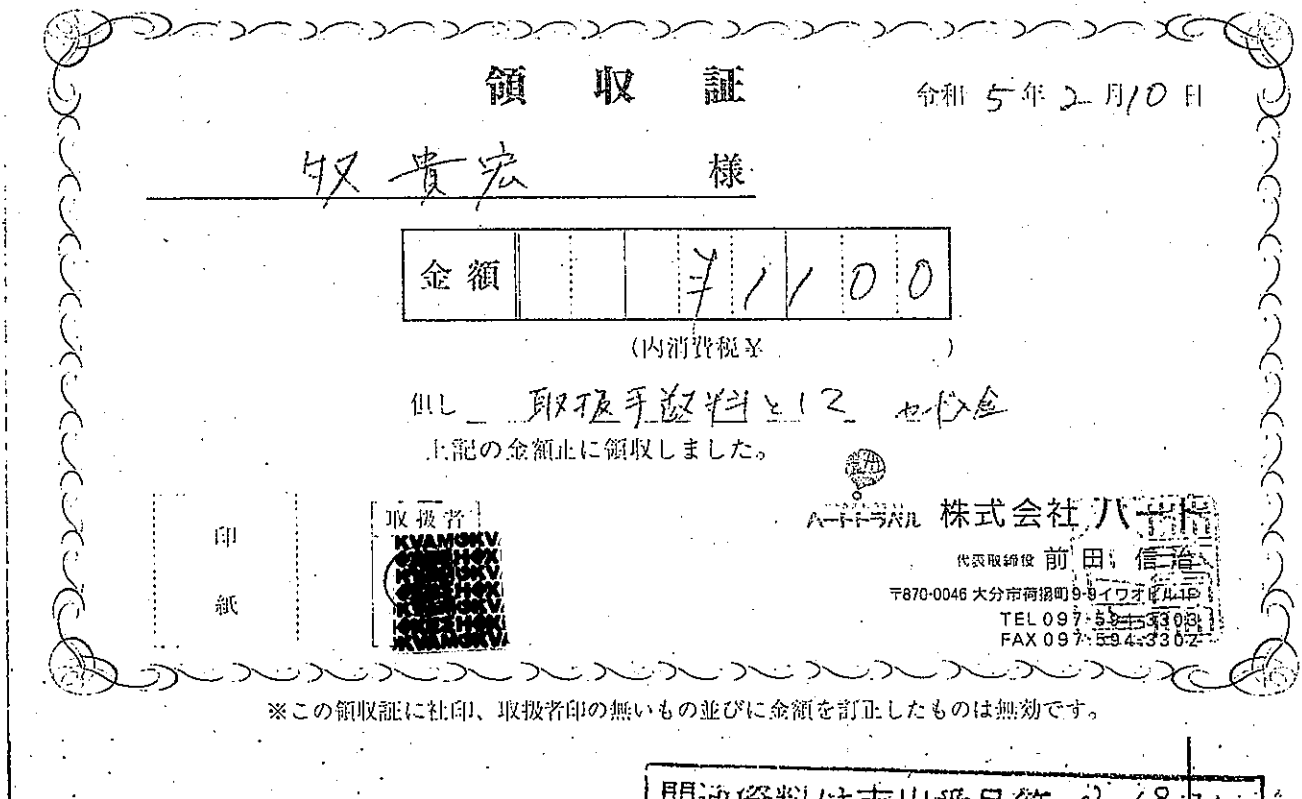 領収証
令和 5年 2月10日
貴宏 様
金額 ¥1100
(内消費税¥ )
但し 取扱手数料として カード入金
上記の金額正に領収しました。
印紙
取扱者
ハートトラベル 株式会社ハート
代表取締役 前田 信治
〒870-0046 大分市荷揚町9-9イワオビル1F
TEL 097-594-3303
FAX 097-594-3302
※この領収証に社印、取扱者印の無いもの並びに金額を訂正したものは無効です。